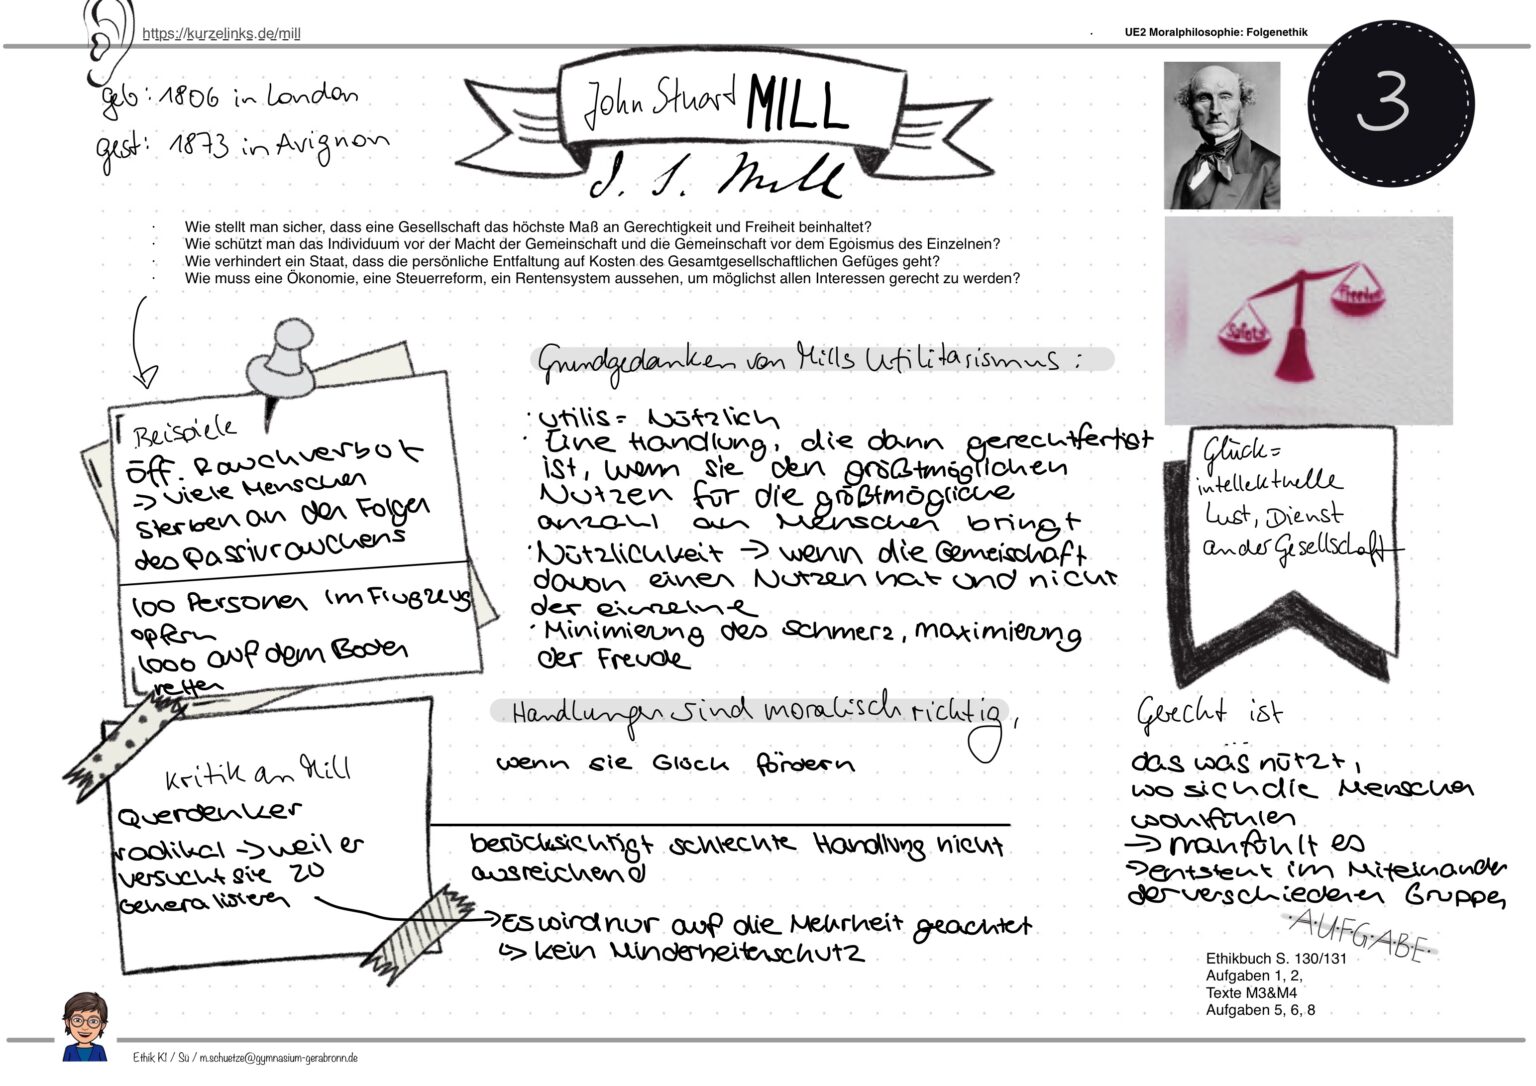 https://kurzelinks.de/mill
UE2 Moralphilosophie: Folgenethik
geb: 1806 in London
gest: 1873 in Avignon
John Stuart MILL
J. S. Mill
3
· Wie stellt man sicher, dass eine Gesellschaft das höchste Maß an Gerechtigkeit und Freiheit beinhaltet?
· Wie schützt man das Individuum vor der Macht der Gemeinschaft und die Gemeinschaft vor dem Egoismus des Einzelnen?
· Wie verhindert ein Staat, dass die persönliche Entfaltung auf Kosten des Gesamtgesellschaftlichen Gefüges geht?
· Wie muss eine Ökonomie, eine Steuerreform, ein Rentensystem aussehen, um möglichst allen Interessen gerecht zu werden?
Safety
Freedom
Beispiele
öff. Rauchverbot
-> viele Menschen
sterben an den Folgen
des Passivrauchens
100 Personen im Flugzeug
opfern
1000 auf dem Boden
retten
Grundgedanken von Mills Utilitarismus:
· utilis = Nützlich
· Eine Handlung, die dann gerechtfertigt
ist, wenn sie den größtmöglichen
Nutzen für die größtmögliche
anzahl an Menschen bringt
· Nützlichkeit -> wenn die Gemeischaft
davon einen Nutzen hat und nicht
der einzelne
· Minimierung des schmerz, maximierung
der Freude
Glück =
intellektuelle
Lust, Dienst
an der Gesellschaft
Handlungen sind moralisch richtig,
wenn sie Glück fördern
Gerecht ist
...
das was nützt,
wo sich die Menschen
wohlfühlen
-> man fühlt es
-> entsteht im Miteinander
der verschiedenen Gruppen
Kritik an Mill
Querdenker
radikal -> weil er
versucht sie zu
Generalisieren
berücksichtigt schlechte Handlung nicht
ausreichend
-> Es wird nur auf die Mehrheit geachtet
↳ kein Minderheitenschutz
·A·U·F·G·A·B·E·
Ethikbuch S. 130/131
Aufgaben 1, 2,
Texte M3&M4
Aufgaben 5, 6, 8
Ethik K1 / Sü / m.schuetze@gymnasium-gerabronn.de